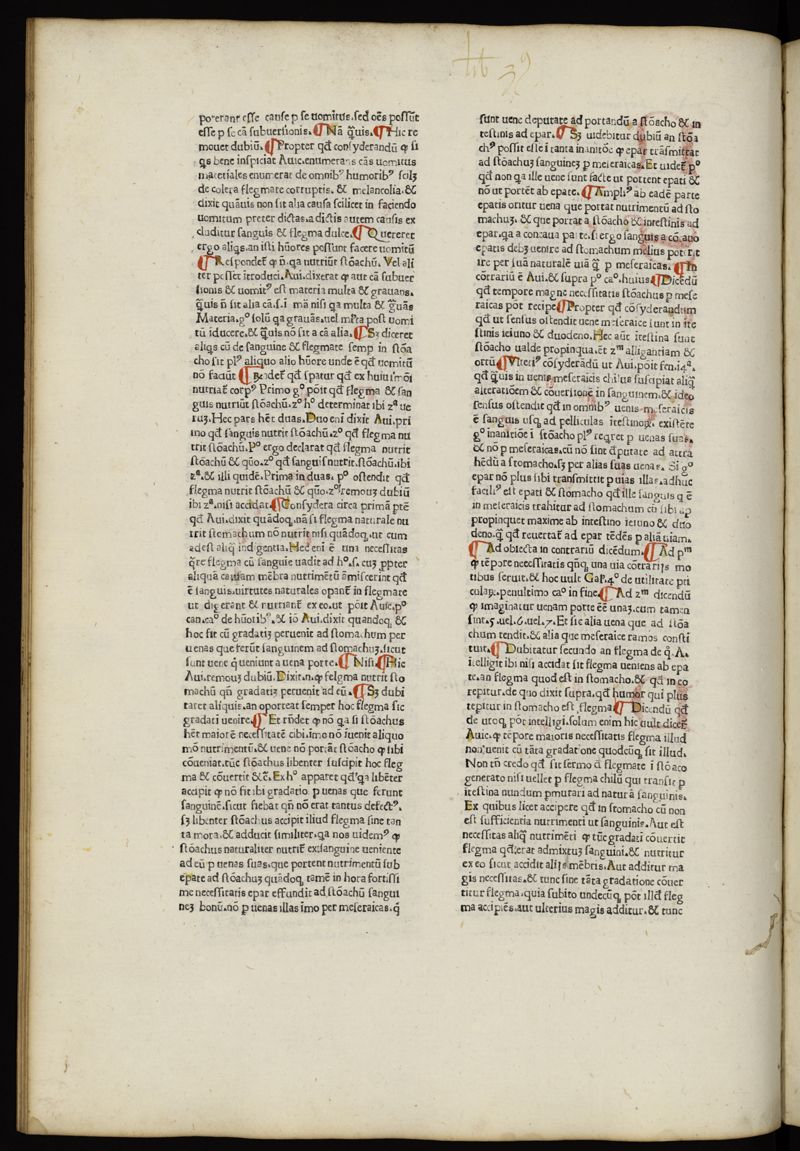 poterant esse cause p se uomitus.sed oēs possūt
esse p se cā subuersionis.¶Nā q̄uis.¶Hic re
mouet dubiū.¶Propter qđ consyderandū ꝙ si
qs bene inspiciat Auic.enumerans cās uomitus
materiales enumerat de omnibꝰ humoribꝰ scilꝫ
de colera flegmate corruptis.& melancolia.&
dixit quāuis non sit alia causa scilicet in faciendo
uomitum preter dictas.a dictis autem causis ex
cluditur sanguis & flegma dulce.¶Quereret
ergo aliqs.an isti hūores possunt facere uomitū
¶Respondet ꝙ ñ.qa nutriūt stōachū. Vel ali
ter posset itroduci.Aui.dixerat ꝙ aut cā subuer
sionis & uomitꝰ est materia multa & grauans.
q̄uis ñ sit alia cā.s.i mā nisi qa multa & g̃uās
Materia.gº solū qa grauās.uel mr̄ia post uomi
tū iducere.& q̄uis nō sit a cā alia.¶Sꝫ diceret
aliqs cū de sanguine & flegmate semp in stōa
cho sit plꝰ aliquo alio hūore unde ē qđ uomitū
nō faciūt
nutriat̄ corpꝰ Primo gº pōit qđ flegma & san
guis nutriūt stōachū.zº hº determinat ibi zª ue
ruꝫ.Hec pars hēt duas.Duo eni dixit Aui.pri
mo qđ sanguis nutrit stōachū.zº qđ flegma nu
trit stōachū.Pº ergo declarat qđ flegma nutrit
stōachū & quō.zº qđ sanguis nutrit.stōachū.ibi
zª.& illi quidē.Prima in duas. pº ostendit qđ
flegma nutrit stōachū & quō.zº remouꝫ dubiū
ibi zª.nisi accidat.¶Consydera circa primā ptē
qđ Aui.dixit quādoqꝫ.nā si flegma naturale nu
trit stomachum nō nutrit nisi quādoqꝫ.ut cum
adest aliq̄ indigentia.Hec eni ē una necessitas
q̄re flegma cū sanguie uadit ad hº.s.cuꝫ ppter
aliquā causam mēbra nutrimētū āmiserint qđ
ē sanguis.uirtutes naturales opant̄ in flegmate
ut digerant & nutriant ex eo.ut pōit Auic.pº
can.caº de hūoribꝰ.& iō Aui.dixit quandoqꝫ &
hoc fit cū gradatiꝫ peruenit ad stomachum per
uenas que ferūt sanguinem ad stomachuꝫ.sicut
sunt uene q̄ ueniunt a uena porte.¶Nisi.¶Hic
Aui.remouꝫ dubiū.Dixit.n.ꝙ felgma nutrit sto
machū qñ gradatiꝫ peruenit ad eū.¶Sꝫ dubi
taret aliquis.an oporteat semper hoc flegma sic
gradati uenire.¶Et rñdet ꝙ nō qa si stōachus
hēt maiorē necessitatē cibi.imo nō iuenit aliquo
mō nutrimentū.& uene nō portāt stōacho ꝙ sibi
cōueniat.tūc stōachus libenter suscipit hoc fleg
ma & cōuertit &c̄.Exhº apparet qđ qa libēter
accipit ꝙ nō fit ibi gradatio p uenas que ferunt
sanguinē.sicut fiebat qñ nō erat tantus defectꝰ.
sꝫ libenter stōachus accipit illud flegma sine tan
ta mora.& adducit similiter.qa nos uidemꝰ ꝙ
stōachus naturaliter nutrit̄ ex sanguine ueniente
ad eū p uenas suas.que portent nutrimentū sub
epate ad stōachuꝫ quādoqꝫ tamē in hora fortissi
me necessitatis epar effundit ad stōachū sangui
neꝫ bonū.nō p uenas illas īmo per meseraicas.q̄
sunt uene deputate ad portandū a stōacho & in
testinis ad epar.¶Sꝫ uidebitur dubiū an stōa
chꝰ possit esse i tanta inanitōe ꝙ epar trāsmittat
ad stōachuꝫ sanguineꝫ p meseraicas.Et uidet̄ pº
qđ non qa ille uene sunt facte ut portent epati &
nō ut portēt ab epate.¶Ampliꝰ ab eadē parte
epatis oritur uena que portat nutrimentū ad sto
machuꝫ.& que portat a stōacho & intestinis ad
epar.qa a concaua parte.si ergo sanguis a cōcauo
epatis debꝫ uenire ad stomachum melius poterit
ire per suā naturalē uiā q̄ p meseraicas.¶In
cōtrariū ē Aui.& supra pº caº.huius¶Dicēdū
qđ tempore magne necessitatis stōachus p mese
raicas pōt recipe¶Propter qđ cōsyderandum
qđ ut sensus ostendit uene meseraice sunt in ite
stinis ieiuno & duodeno.Hec aūt itestina sunt
stōacho ualde propinqua.Et zᵐ alligantiam &
ortū¶Vlteriꝰ cōsyderādū ut Aui.pōit fen.i4ª.
qđ q̄uis in uenis meseraicis chilus suscipiat aliq̄
alteratiōem & cōuersionē in sanguinem.& ideo
sensus ostendit qđ in omnibꝰ uenis meseraicis
ē sanguis usqꝫ ad pelliculas itestinoꝝ existēre
gº inanitiōe i stōacho plꝰ reqret p uenas suas.
& nō p meseraicas.cū nō sint dputate ad attra
hēdū a stomacho.sꝫ per alias suas uenas. Si gº
epar nō plus sibi transmittit p uias illas.adhuc
faciliꝰ est epati & stomacho qđ ille sanguis q ē
in meseraicis trahitur ad stomachum cū sibi ap
propinquet maxime ab intestino ieiuno & duo
deno.q̄ qđ reuertat̄ ad epar tēdēs p aliā uiam.
¶Ad obiecta in contrariū dicēdum.¶Ad pᵐ
ꝙ tēpore necessitatis qñqꝫ una uia cōtrarijs mo
tibus seruit.& hoc uult Gal.4º de utilitate pri
cularꝫ.penultimo caº in fine.¶Ad zᵐ dicendū
ꝙ imaginatur uenam porte eē unaꝫ.cum tamen
sint.5.uel.6.uel.7.Et sic alia uena que ad stōa
chum tendit.& alia que meseraice ramos consti
tuit.¶Dubitatur secundo an flegma de q̄.A.
itelligit ibi nisi accidat sit flegma ueniens ab epa
te.an flegma quod est in stomacho.& qđ in eo
repitur.de quo dixit supra.qđ humor qui plus
repitur in stomacho est flegma¶Dicendū qđ
de utroqꝫ pōt intelligi.solum enim hic uult dicer̄
Auic.ꝙ tēpore maioris necessitatis flegma illud
non uenit cū tāta gradatione quodcūqꝫ sit illud.
Non tñ credo qđ sit sermo d̄ flegmate i stōaco
generato nisi uellet p flegma chilū qui transit p
itestina nundum pmutari ad naturā sanguinis.
Ex quibus licet accipere qđ in stomacho cū non
est sufficientia nutrimenti ut sanguinis. Aut est
necessitas aliq̄ nutrimēti ꝙ tūc gradati cōuertit
flegma qđ erat admixtuꝫ sanguini.& nutritur
ex eo sicut accidit alijs mēbris.Aut additur ma
gis necessitas.& tunc sine tāta gradatione cōuer
titur flegma.quia subito undecūqꝫ pōt illđ fleg
ma accipiēs.aut ulterius magis additur.& tunc